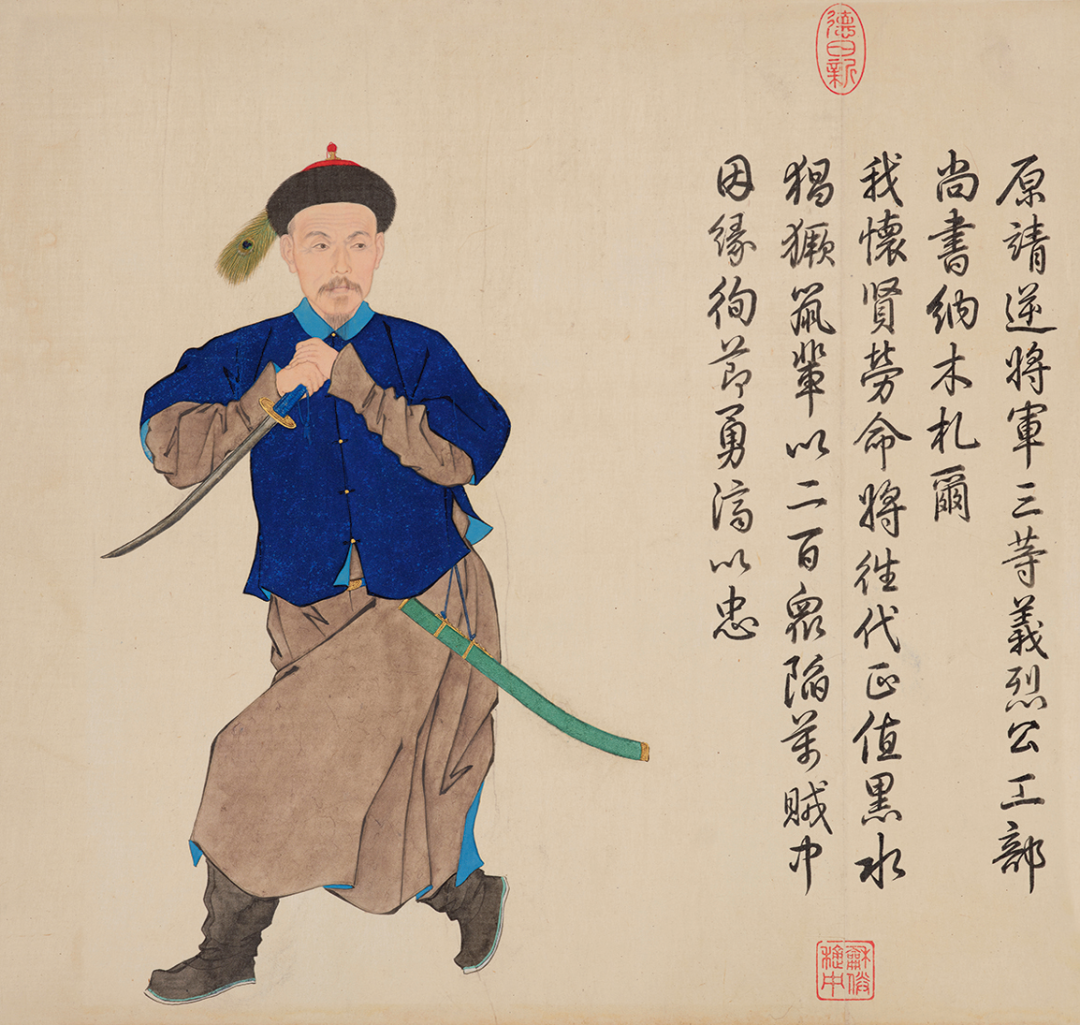 德日新
原靖逆將軍三等義烈公工部
尚書納木札爾
我懷賢勞命將往代正值黑水
猖獗鼠輩以二百眾陷萬賊中
因緣徇節勇濟以忠